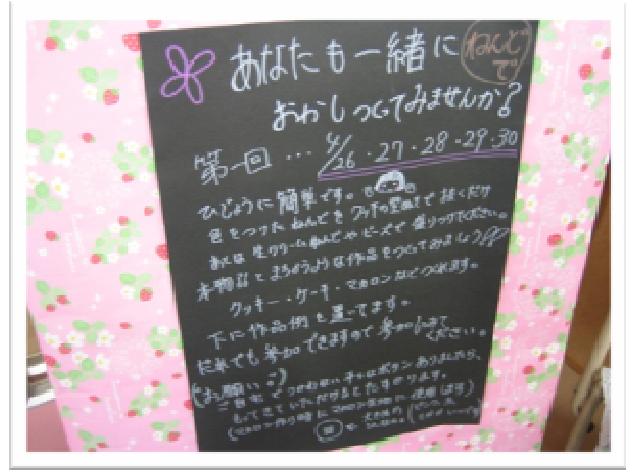 あなたも一緒に ねんどで
おかしつくってみませんか?
第一回 … 4/26・27・28・29・30
ひじょうに簡単です。
色をつけたねんどをクッキーの型ぬきで抜くだけ
あとは生クリームねんどやビーズで盛りつけてください。
本物とまちがうような作品をつくってみましょう
クッキー・ケーキ・マカロンなどつくれます。
下に作品例を置いてます。
だれでも参加できますので参加してください。
(お願い)
ご自宅でつかわないボタンありましたら、
もってきていただけるとたすかります。
(マカロン作り時に 使用します)